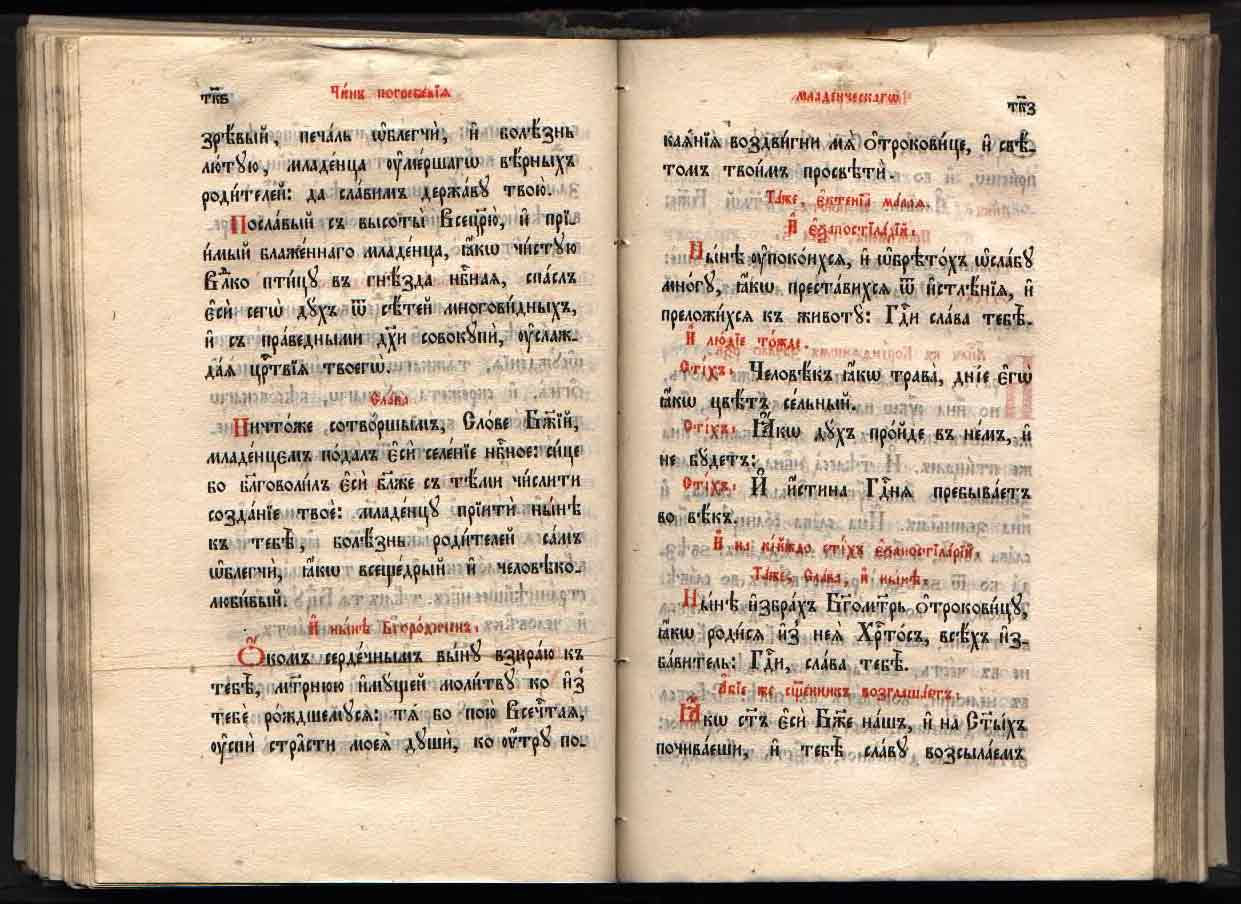 тк҃б
Чи́нъ погребе́нїѧ
зрѣ́вый, печа́ль ѡ҆блегчѝ, и҆ болѣ́знь
лю́тꙋю, младе́нца ᲂу҆ме́ршагѡ вѣ́рныхъ
роди́телей: да сла́вимъ держа́вꙋ твою̀.
Посла́вый съ высоты̀ Всещ҃рю̀, и҆ прїи́-
и҆́мый блаже́ннаго младе́нца, ꙗ҆́кѡ чи́стꙋю
Влⷣко пти́цꙋ въ гнѣ́зда нб҃наѧ, спа́слъ
є҆сѝ сегѡ̀ дꙋ́хъ ѿ сѣ́тей многови́дныхъ,
и҆ съ пра́ведными дх҃и совокꙋпѝ, ᲂу҆слаж-
да́ѧ црⷭ҇твїѧ твоегѡ̀.
Сла́ва
Ничто́же сотво́ршымъ, Сло́ве Бж҃їй,
младе́нцемъ по́далъ є҆сѝ селе́нїе нб҃ное: си́це
бо бл҃говоли́лъ є҆сѝ бл҃же съ тѣ́ми чи́слити
созда́нїе твоѐ: младе́нцꙋ прїитѝ ны́нѣ
къ тебѣ̀, болѣ́знь роди́телей са́мъ
ѡ҆блегчѝ, ꙗ҆́кѡ всеще́дрый и҆ человѣко-
люби́вый.
И҆ ны́нѣ Бг҃оро́диченъ.
Ѻ҆́комъ серде́чнымъ вы́нꙋ взира́ю къ
тебѣ̀, мт҃рнюю и҆мꙋ́щей моли́твꙋ ко и҆з̾
тебѐ ро́ждшемꙋсѧ: тѧ́ бо пою̀ Всечⷭ҇таѧ,
ᲂу҆спѝ стра̑сти моеѧ̀ дꙋшѝ, ко ᲂу҆́трꙋ по-
младе́нческагѡ
тк҃з
каѧ́нїѧ воздви́гни мѧ̀ ѻ҆трокови́це, и҆ свѣ́-
томъ твои́мъ просвѣтѝ.
Та́же, є҆ктенїа̀ ма́лаѧ.
И҆ є҆ѯапостїла́рїй.
Ны́нѣ ᲂу҆поко́ихсѧ, и҆ ѡ҆брѣто́хъ ѡ҆сла́бꙋ
мно́гꙋ, ꙗ҆́кѡ преста́вихсѧ ѿ и҆стлѣ́нїѧ, и҆
преложи́хсѧ къ животꙋ̀: Гдⷭ҇и сла́ва тебѣ̀.
И҆ лю́дїе то́жде.
Сті́хъ: Человѣ́къ ꙗ҆́кѡ трава̀, дні́е є҆гѡ̀
ꙗ҆́кѡ цвѣ́тъ се́льный.
Сті́хъ: Ꙗ҆́кѡ дꙋ́хъ про́йде въ не́мъ, и҆
не бꙋ́детъ:
Сті́хъ: И҆ и҆́стина Гдⷭ҇нѧ пребыва́етъ
во вѣ́къ.
И҆ на кі́йждо сті́хъ є҆ѯапостїла́рїй.
Та́же, Сла́ва, и҆ ны́нѣ.
Ны́нѣ и҆збра́хъ Бг҃ома́трь ѻ҆трокови́цꙋ,
ꙗ҆́кѡ роди́сѧ и҆з̾ неѧ̀ Хрⷭ҇то́съ, всѣ́хъ и҆з-
ба́витель: Гдⷭ҇и, сла́ва тебѣ̀.
А҆́бїе же сщ҃е́нникъ возглаша́етъ.
Ꙗ҆́кѡ ст҃ъ є҆сѝ Бж҃е на́шъ, и҆ на Ст҃ы́хъ
почива́еши, и҆ тебѣ̀ сла́вꙋ возсыла́емъ